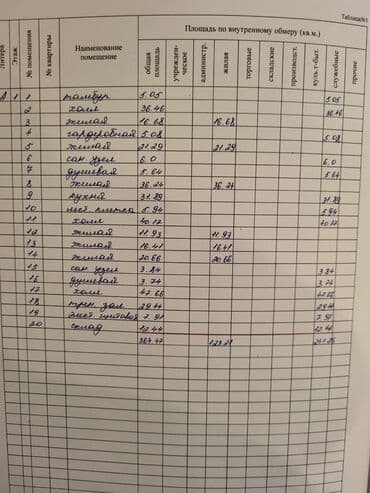 Таблица№1
Литера Этаж № помещения № квартиры Наименование помещение Площадь по внутреннему обмеру (кв.м.)
общая площадь учрежден-ческое администр. жилая торговые складские производст. культ-быт. служебные прочие
А 1 1 тамбур 5.05 5.05
2 холл 36.46 36.46
3 жилая 16.68 16.68
4 гардеробная 5.08 5.08
5 жилая 21.29 21.29
6 сан узел 6.0 6.0
7 душевая 5.64 5.64
8 жилая 36.24 36.24
9 кухня 31.89 31.89
10 5.94 5.94
11 холл 40.17 40.17
12 жилая 11.93 11.93
13 жилая 16.41 16.41
14 жилая 20.66 20.66
15 сан узел 3.84 3.84
16 душевая 3.74 3.74
17 холл 47.66 47.66
18 трен. зал 29.14 29.14
19 элект щитовая 7.91 7.91
20 склад 12.44 12.44